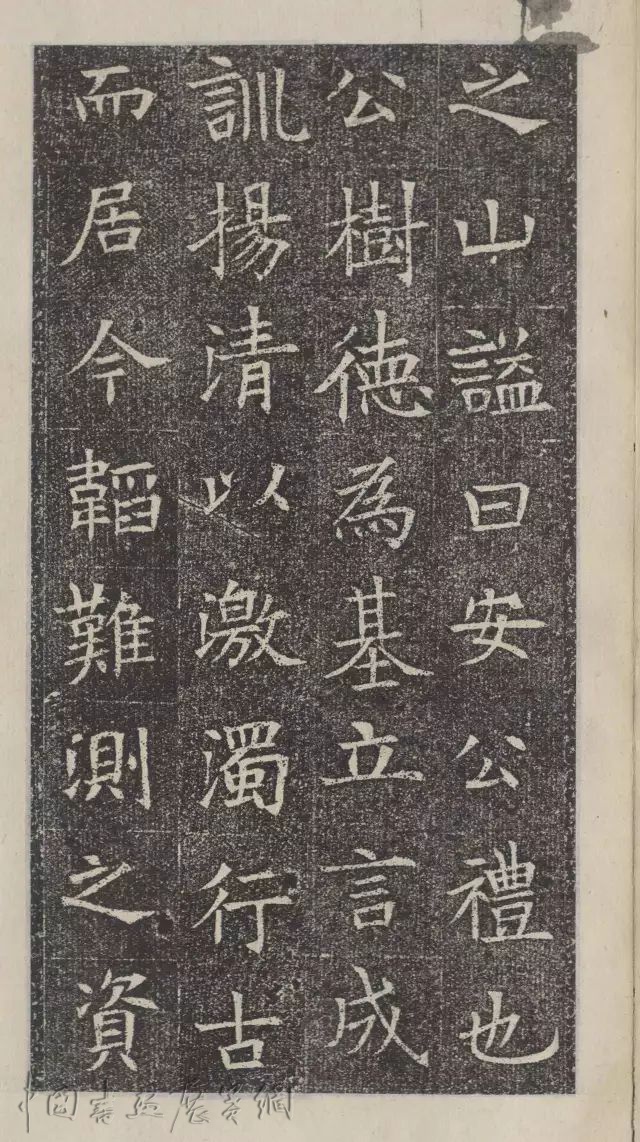 之山謚曰安公禮也
公樹德為基立言成
訓揚清以激濁行古
而居今韜難測之資
中国書法展賽網